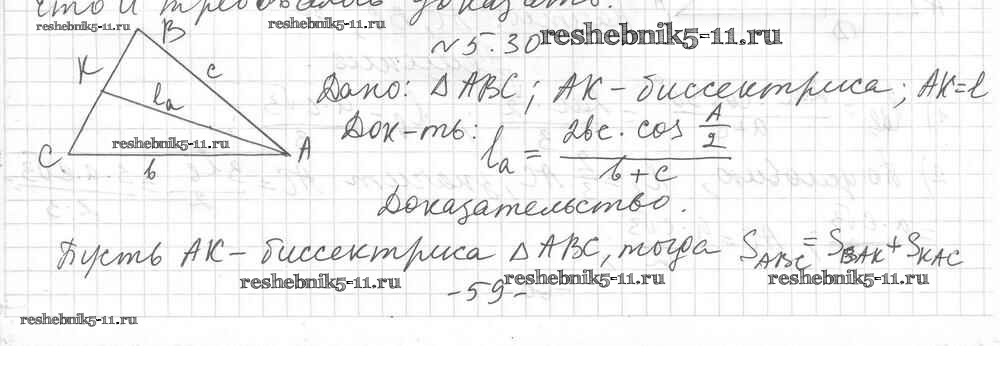 что и требовалось доказать.
reshebnik5-11.ru
reshebnik5-11.ru
B
№ 5.30
reshebnik5-11.ru
K
c
lₐ
Дано: △ABC; AK - биссектриса; AK = l
reshebnik5-11.ru
Док-ть: lₐ = 2bc · cos A/2 / b + c
C
A
b
Доказательство.
Пусть AK - биссектриса △ABC, тогда S_ABC = S_BAK + S_KAC
reshebnik5-11.ru
reshebnik5-11.ru
reshebnik5-11.ru
-59-
reshebnik5-11.ru